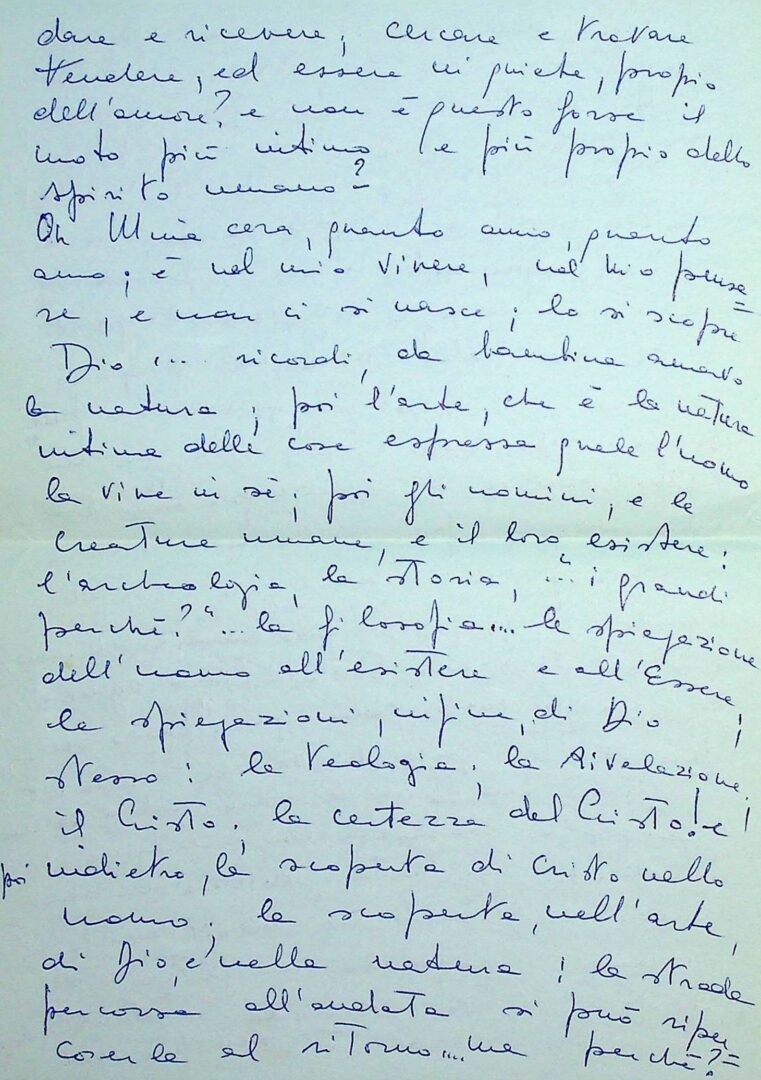 dare e ricevere; cercare e trovare
tendere, ed essere in quiete, proprio
dell'amore? e non è questo forse il
moto più intimo e più proprio dello
spirito umano?
Oh Mia cara, quanto amo, quanto
amo; è nel mio vivere, nel mio pensa=
re, e non ci si nasce; lo si scopre
Dio ... ricordi, da bambina amavo
la natura; poi l'arte, che è la natura
intima delle cose espressa quale l'uomo
la vive in sè; poi gli uomini, e le
creature umane, e il loro esistere:
l'archeologia, la storia, "... i grandi
perchè?"... la filosofia... le spiegazione
dell'uomo all'esistere e all'Essere;
le spiegazioni, infine, di Dio
stesso: la Teologia; la Rivelazione;
il Cristo; la certezza del Cristo! e
poi indietro, la scoperta di Cristo nello
uomo; la scoperta, nell'arte,
di Dio, e nella natura; la strada
percorsa all'andata si può riper=
correrla al ritorno.... ma perchè?=